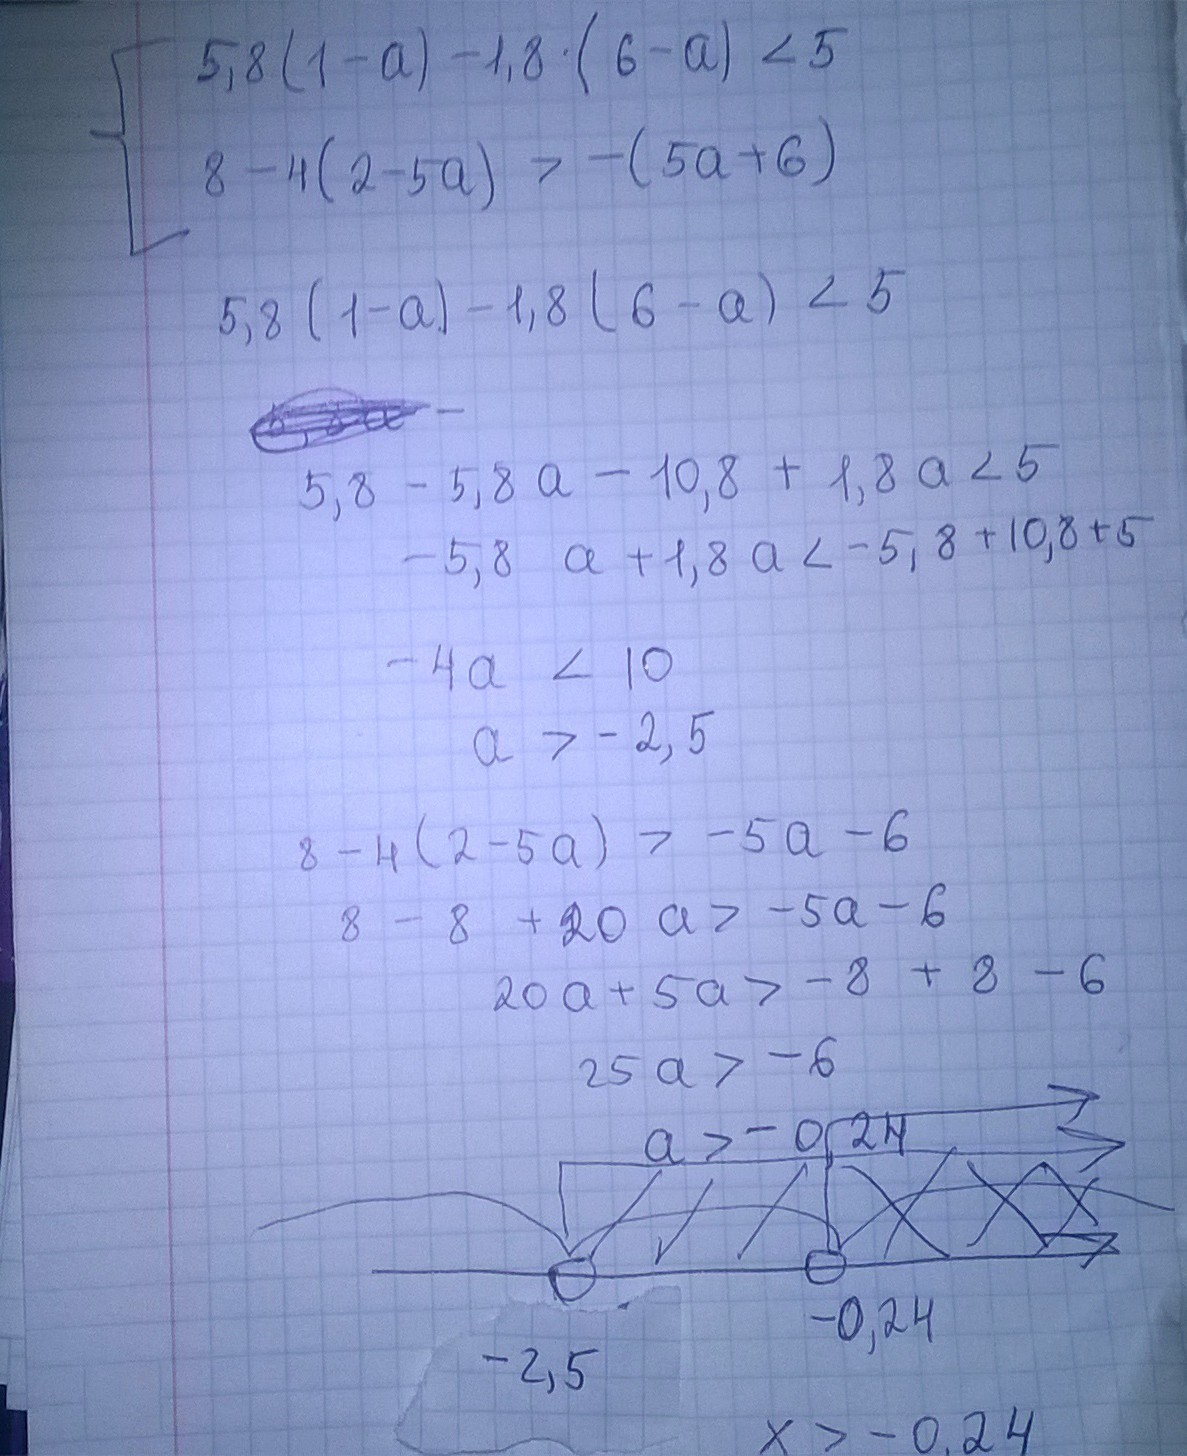 5,8(1-a) -1,8·(6-a) < 5
8 - 4(2-5a) > -(5a+6)
5,8(1-a) -1,8(6-a) < 5
-
5,8 - 5,8a - 10,8 + 1,8a < 5
-5,8 a + 1,8a < -5,8 + 10,8 + 5
-4a < 10
a > -2,5
8 - 4(2-5a) > -5a - 6
8 - 8 + 20a > -5a - 6
20a + 5a > -8 + 8 - 6
25a > -6
a > -0,24
-0,24
-2,5
x > -0,24